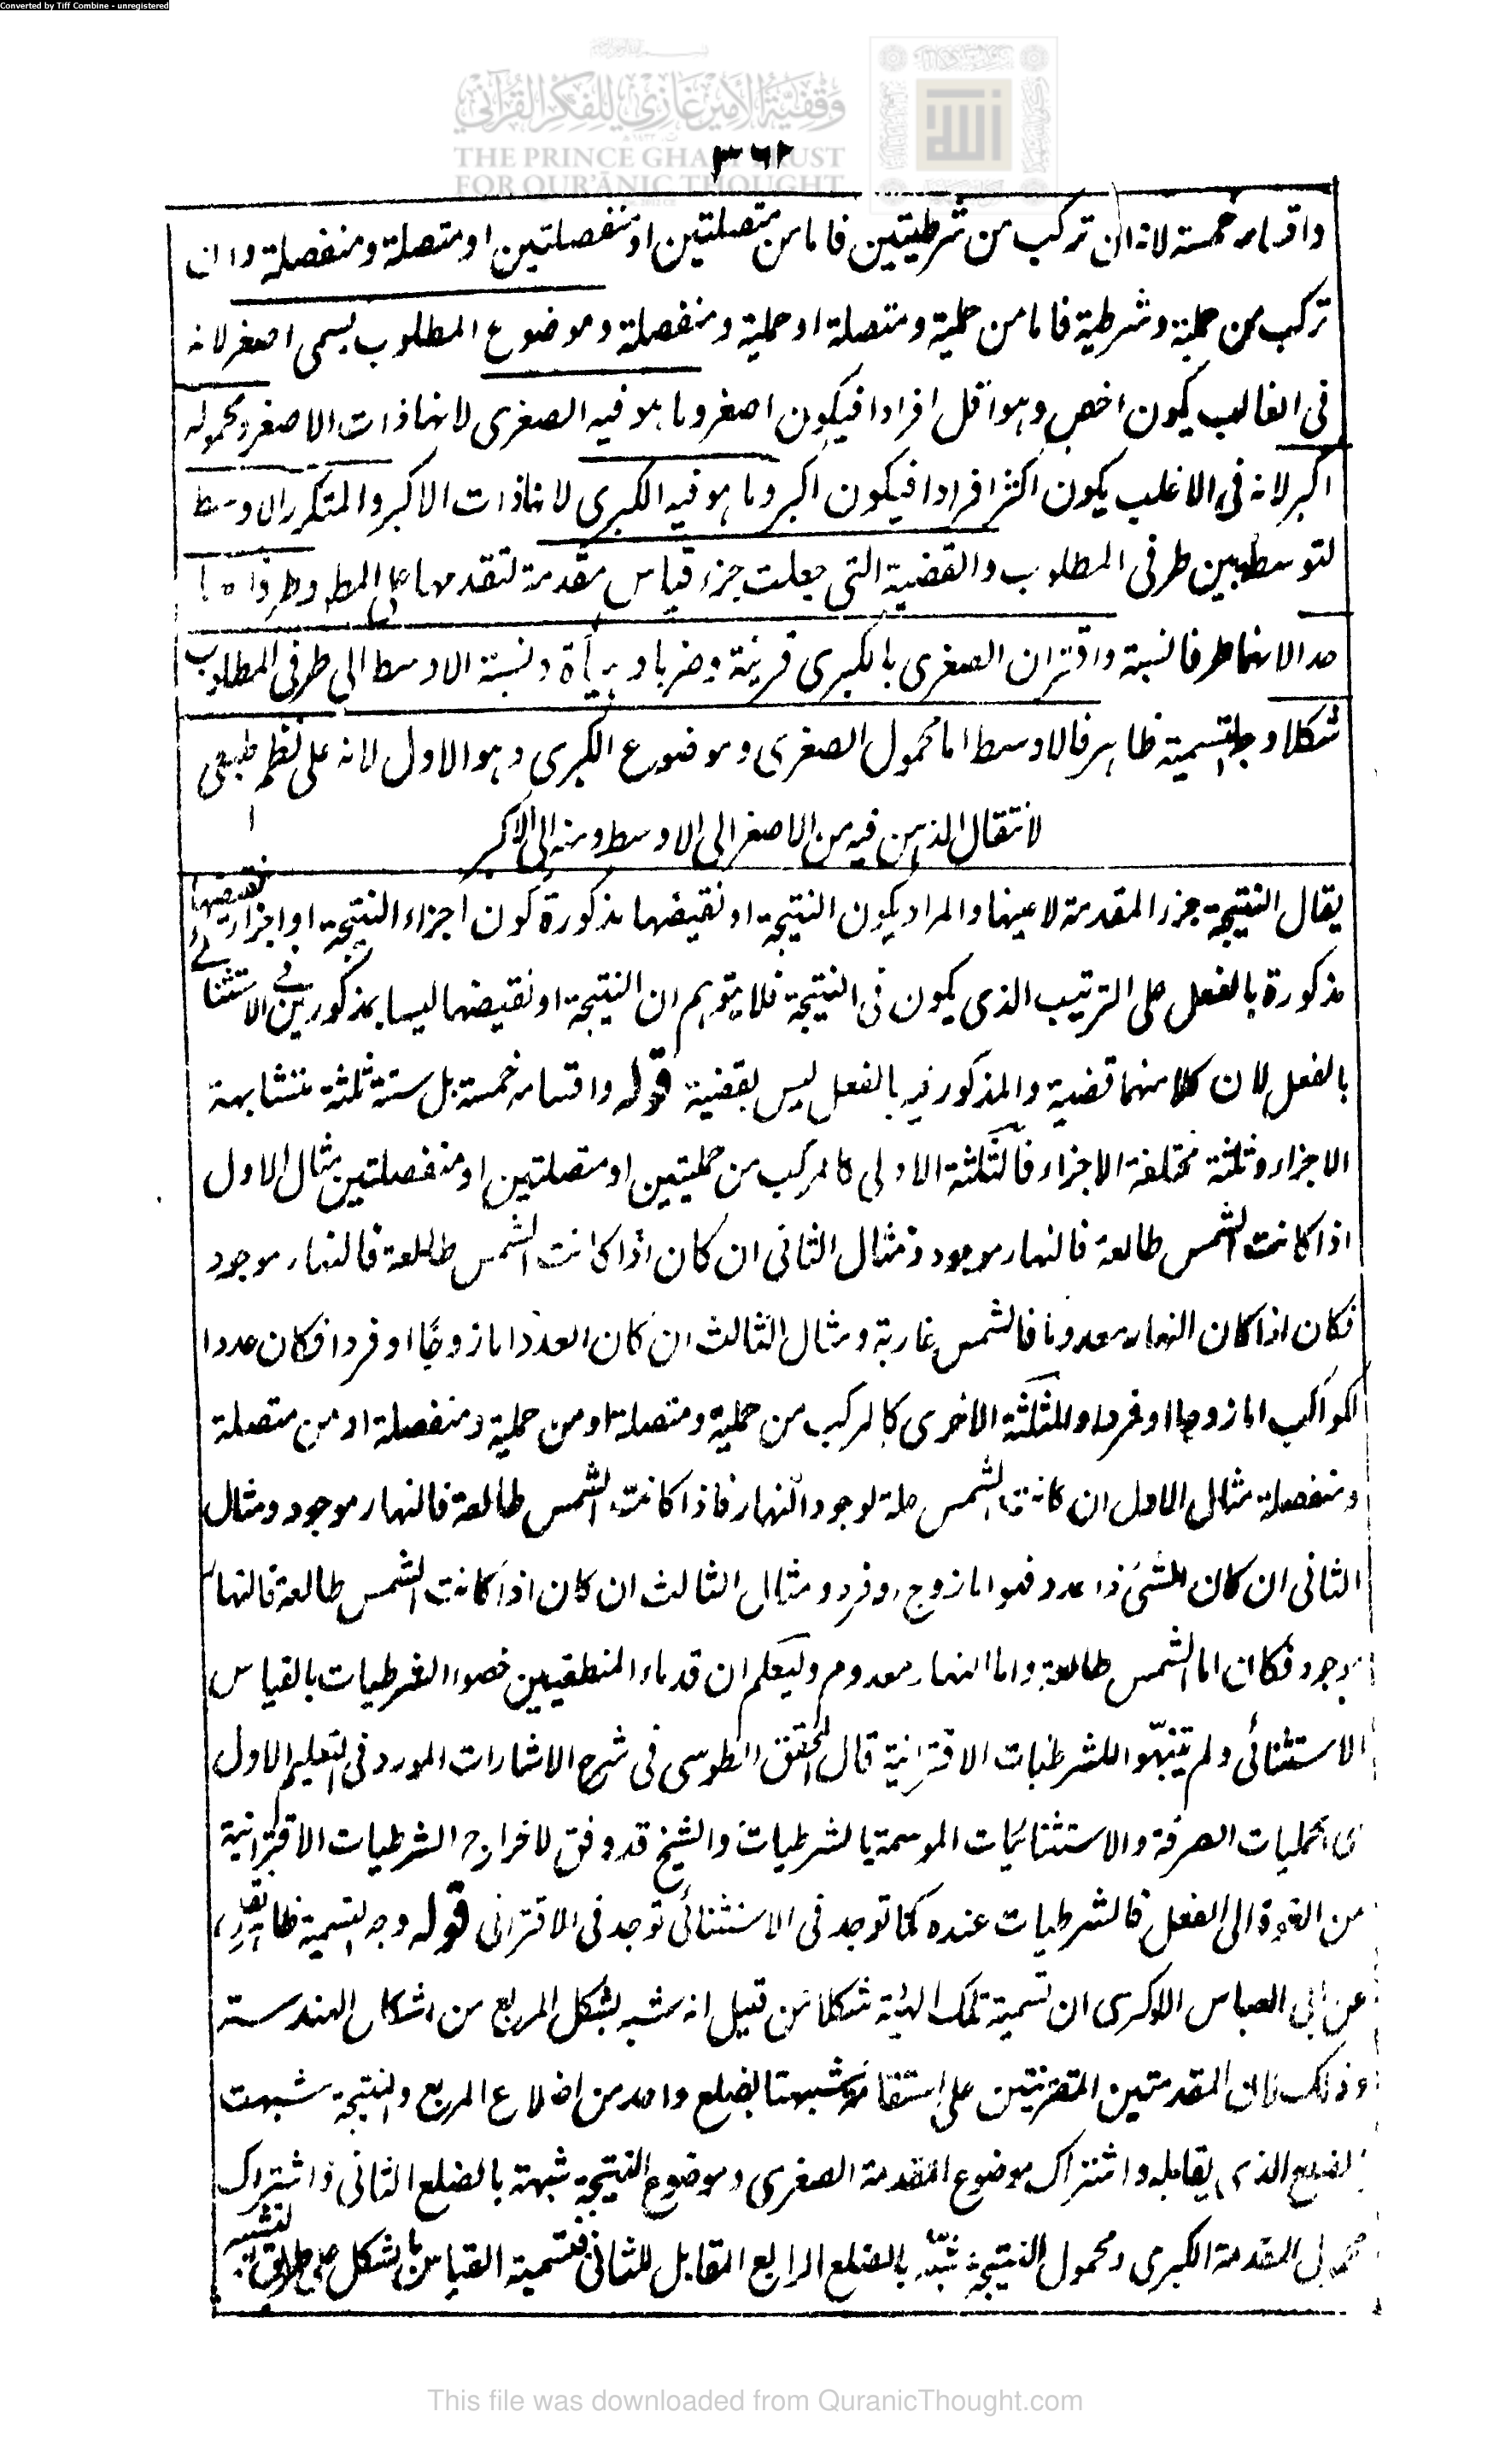 Converted by Tiff Combine - unregistered
وقفية الأمير غازي للفكر القرآني
THE PRINCE GHAZI TRUST
FOR QUR'ĀNIC THOUGHT
٣٦٢
واقسامه خمسة لانه ان تركب من شرطيتين فاما من متصلتين او منفصلتين او متصلة ومنفصلة وان
تركب من حملية وشرطية فاما من حملية ومتصلة او حملية ومنفصلة وموضوع المطلوب يسمى اصغر لانه
فى الغالب يكون اخص وهو اقل افرادا فيكون اصغر وما هو فيه الصغرى لانها ذات الاصغر ومحموله
اكبر لانه فى الاغلب يكون اكثر افرادا فيكون اكبر وما هو فيه الكبرى لانها ذات الاكبر والمتكرر الاوسط
لتوسطه بين طرفى المطلوب والقضية التى جعلت جزء قياس مقدمة لتقدمها على المط وطرفاها
حدا لانهما طرفا النسبة واقتران الصغرى بالكبرى قرينة وضربا وهيأة ونسبة الاوسط الى طرفى المطلوب
شكلا وجه التسمية ظاهر فالاوسط اما محمول الصغرى وموضوع الكبرى وهو الاول لانه على نظم طبعى
لانتقال الذهن فيه من الاصغر الى الاوسط ومنه الى الاكبر
يقال النتيجة جزء المقدمة لا عينها والمراد بكون النتيجة او نقيضها مذكورة كون اجزاء النتيجة او اجزاء نقيضها
مذكورة بالفعل على الترتيب الذى يكون فى النتيجة فلا يتوهم ان النتيجة او نقيضها ليسا بمذكورين فى الاستثنائى
بالفعل لان كلا منهما قضية والمذكور فيه بالفعل ليس بقضية قوله واقسامه خمسة بل ستة ثلثة متشابهة
الاجزاء وثلثة مختلفة الاجزاء فالثلثة الاولى كالمركب من حمليتين او متصلتين او منفصلتين مثال الاول
اذا كانت الشمس طالعة فالنهار موجود ومثال الثانى ان كان اذا كانت الشمس طالعة فالنهار موجود
فكان اذا كان النهار معدوما فالشمس غاربة ومثال الثالث ان كان العدد اما زوجا او فردا فكان عدد ا
لكواكب اما زوجا او فردا والثلثة الاخرى كالمركب من حملية ومتصلة او من حملية ومنفصلة او من متصلة
ومنفصلة مثال الاول ان كانت الشمس علة لوجود النهار فاذا كانت الشمس طالعة فالنهار موجود ومثال
الثانى ان كان الشئ ذا عدد فهو اما زوج او فرد ومثال الثالث ان كان اذا كانت الشمس طالعة فالنهار
موجود فكان اما الشمس طالعة واما النهار معدوم وليعلم ان قدماء المنطقيين خصوا الشرطيات بالقياس
الاستثنائى ولم يتنبهوا للشرطيات الاقترانية قال المحقق الطوسى فى شرح الاشارات المورد فى التعليم الاول
هى الحمليات الصرفة والاستثنائيات الموسمة بالشرطيات والشيخ قد وفق لاخراج الشرطيات الاقترانية
من القوة الى الفعل فالشرطيات عنده كما توجد فى الاستثنائى توجد فى الاقترانى قوله وجه التسمية ظاهر نقل
عن ابى العباس اللوكرى ان تسمية تلك الهيئة شكلا من قبيل انه شبه بشكل المربع من اشكال الهندسة
وذلك لان المقدمتين المقترنتين على استقامة شبهتا بضلع واحد من اضلاع المربع والنتيجة شبهت
بالضلع الذى يقابله واشتراك موضوع المقدمة الصغرى وموضوع النتيجة شبهة بالضلع الثانى واشتراك
محمولى المقدمة الكبرى ومحمول النتيجة شبه بالضلع الرابع المقابل للثانى فتسمية القياس بالشكل على طريق التشبيه
This file was downloaded from QuranicThought.com